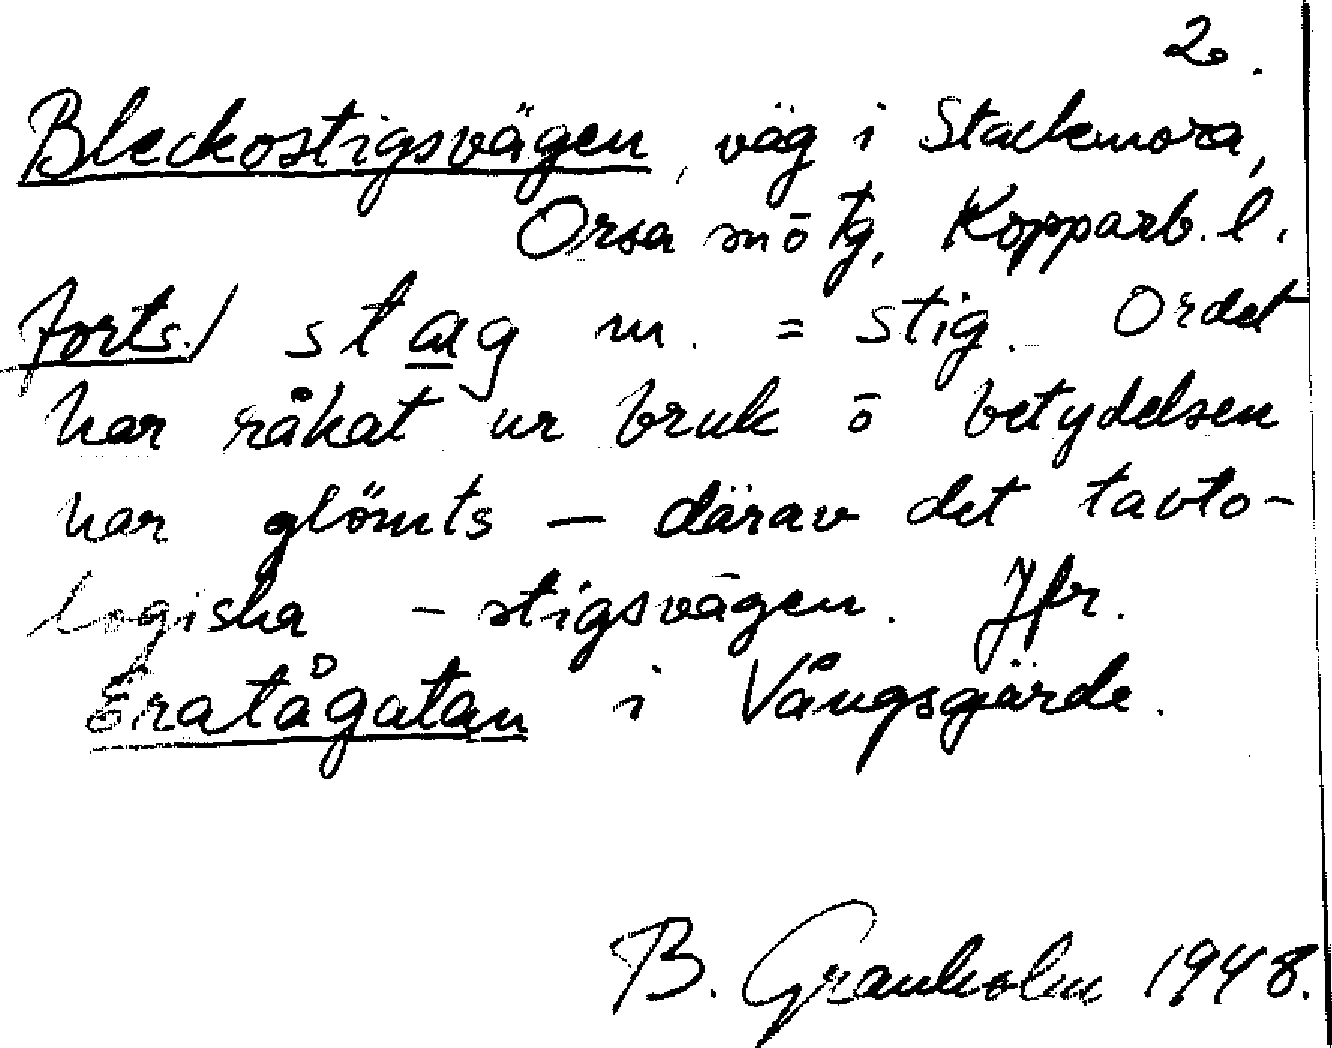 2.
Bleckostigsvägen, väg i Stackmora,
Orsa sn ō tg, Kopparb. l.
forts./ staig m. = stig. Ordet
har råkat ur bruk ō betydelsen
har glömts — därav det tavto-
logiska -stigsvägen. Jfr.
Eratågatan i Vångsgärde.
B. Granholm 1948.